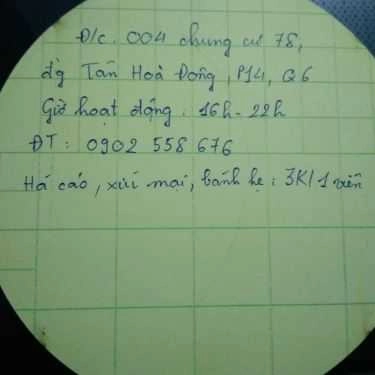 Đ/c. 004 chung cư 78,
đg Tân Hoà Đông, P14, Q6
Giờ hoạt động: 16h - 22h
ĐT: 0902 558 676
Há cảo, xíu mại, bánh hẹ: 3K/1 viên